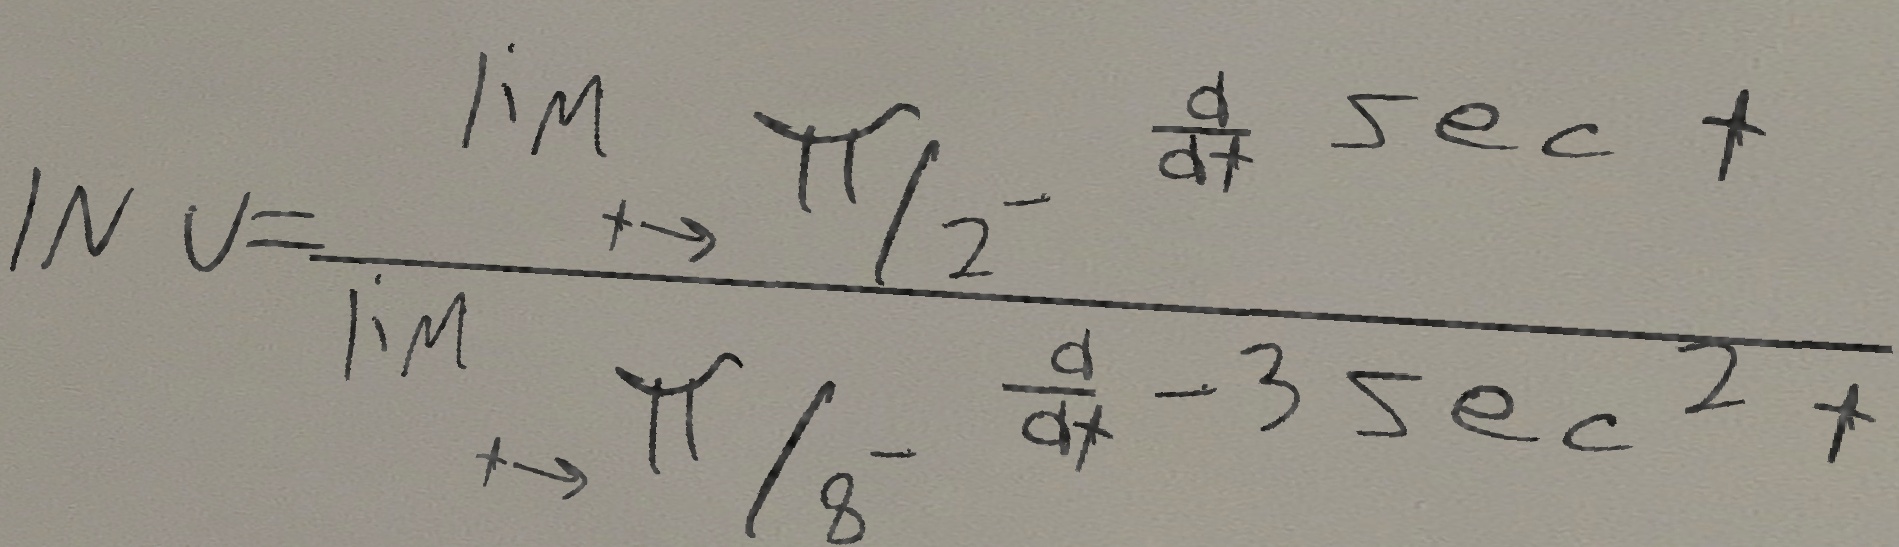 ln U = \frac{\lim_{t \to \pi/2^-} \frac{d}{dt} \sec t}{\lim_{t \to \pi/8^-} \frac{d}{dt} -3 \sec^2 t}